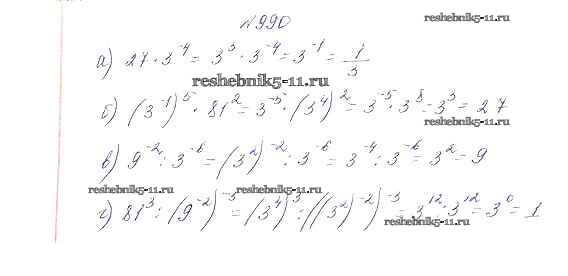 №990
reshebnik5-11.ru
а) 27 · 3⁻⁴ = 3³ · 3⁻⁴ = 3⁻¹ = 1/3
reshebnik5-11.ru
б) (3⁻¹)⁵ · 81² = 3⁻⁵ · (3⁴)² = 3⁻⁵ · 3⁸ = 3³ = 27
reshebnik5-11.ru
в) 9⁻² : 3⁻⁶ = (3²)⁻² : 3⁻⁶ = 3⁻⁴ : 3⁻⁶ = 3² = 9
reshebnik5-11.ru reshebnik5-11.ru
г) 81³ : (9⁻²)⁻³ = (3⁴)³ : ((3²)⁻²)⁻³ = 3¹² : 3¹² = 3⁰ = 1
reshebnik5-11.ru